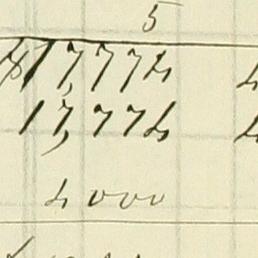 5
$17,774
17,774
4000